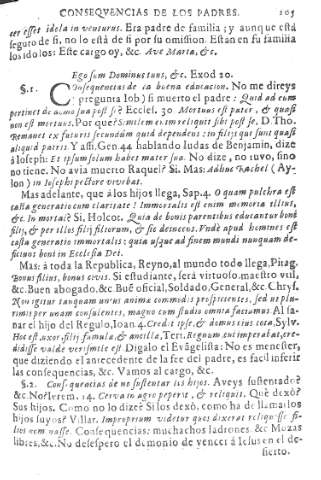 CONSEQVENCIAS DE LOS PADRES. 205
cer esset idola in venturus. Era padre de familia; y aunque està
seguro de si, no lo està de si por su omission. Estàn en su familia
los idolos: Este cargo oy, &c. Ave Maria, &c.
Ego sum Dominus tuus, &c. Exod 20.
§.1. COnsequencias de la buena educacion. No me direys
(pregunta Iob) si muerto el padre: Quid ad eum
pertinet de domo sua post se? Eccles. 30 Mortuus est pater, & quasi
non est mortuus. Por què? Similem enim reliquit sibi post se. D. Tho.
aliquid patris. Y assi. Gen. 44 hablando Iudas de Benjamin, dize
à Ioseph: Et ipsum solum habet mater sua. No dize, no tuvo, sino
no tiene. No avia muerto Raquel? Si. Mas: Adhuc Rachel (Ay-
lon) in Iosephi pectore vivebat.
Mas adelante, que à los hijos llega, Sap. 4. O quam pulchra est
casta generatio cum claritate! Immortalis est enim memoria illius,
&c. In mortal? Si, Holcot. Quia de bonis parentibus educantur boni
filij, & per illos filij filiorum, & sic deinceps. Vndè apud homines est
casta generatio immortalis: quia usque ad finem mundi nunquam de-
Mas: à toda la Republica, Reyno, al mundo todo llega, Pitag.
Bonus filius, bonus civis. Si estudiante, serà virtuoso: maestro
&c. Buen abogado. &c. Buẽ oficial, Soldado, General, &c. Chrys.
Non igitur tanquam unius animæ commodis prospicientes, sed ut plu-
rimis per unam consulentes, magno cum studio omnia faciamus Al sa-
nar el hijo del Regulo, Ioan 4. Credit ipse, & domus eius tota, Sylv.
Hoc est, uxor filij famula, & ancilla, Tert. Regnum cui imperabat, cre-
didisse valde verisimile est Digalo el Evãgelista: No es menester,
que diziendo el antecedente de la fee del padre, es facil inferir
las consequencias, &c. Vamos al cargo, &c.
§.2. Consequencias de no sustentar los hijos. Aveys sustentado?
&c. No? Ierem. 14. Cerva in agro peperit, & reliquit. Què dexò?
Sus hijos. Como no lo dize? Si los dexò, como ha de llamarlos
hijos suyos? Villar. Improprium videtur quos dixerat reliquisse fi-
lios non nosse. Consequencias: muchachos ladrones. &c Mozas
libres, &c. No desesperò el demonio de vencer à Iesus en el de-
sierto.